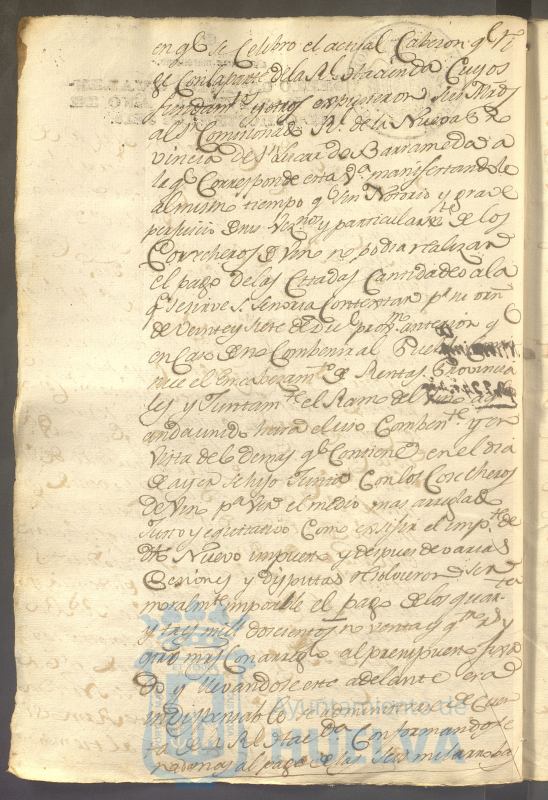 en qe. se Celibro el actual Cabezon qe.
Con la parte de la Rl. Hacienda Cuyos
fundamtos. y otros expusieron
al Sr. Comisionado Rl. de la Nueva Pro
vincia de Sn. Lucar de Barrameda a
la qe. Corresponde esta Va. manifestandole
al mismo tiempo qe. sin Notorio y grave
perjuicio de sus Veznos. y particularmte. de los
Cosecheros de Vino no podia realizar
el pago de las Citadas Cantidades a la
qe. se sirve S. Señoria Contextar pr. su orn.
de Veinte y Siete de anterior qe.
en Caso de no Combenir al Pueblo
el Encabezamto. de Rentas Provincia
les y Juntamte. el Ramo del
anda unido hara el uso Combente. y en
Vista de lo demas qe. Contiene en el dia
de ayer se hiso Junta Con los Cosecheros
de Vino pa. Ver el medio mas arreglado
Justo y equitativo Como exsijir el impte. de
dho. Nuevo impuesto y despues de varias
Cesiones y disputas resolvieron ser
moralmte. imposible el pago de los quaren
ta y tres mil doscientos noventa y qtro. rs. y
qtro. mrs. Con arreglo al presupuesto
do y llevandose este adelante era
indispensable se administrase de Cuen
ta de la Rl. Hacda. Conformandose
al pago de las seis mil arrobas
Ayuntamiento de
HUELVA